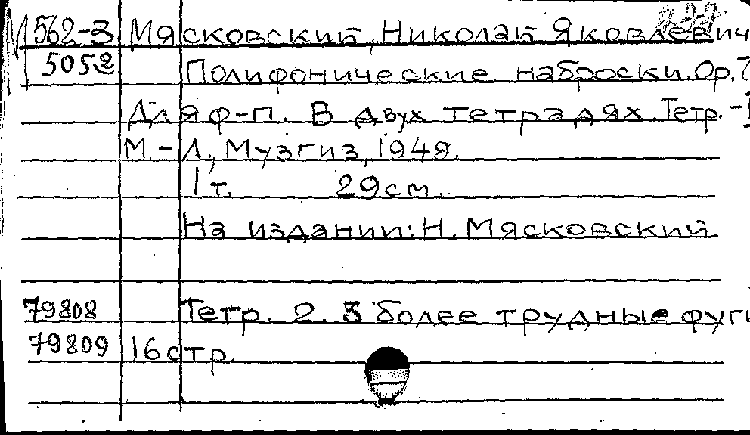 М562-3 Мясковский, Николай Яковлевич
5052 Полифонические наброски. Ор.
Для ф-п. В двух тетрадях. Тетр.-
М.-Л., Музгиз, 1949.
1 т. 29см.
На издании: Н. Мясковский
79808 Тетр. 2. 3 более трудные фуги
79809 16стр.